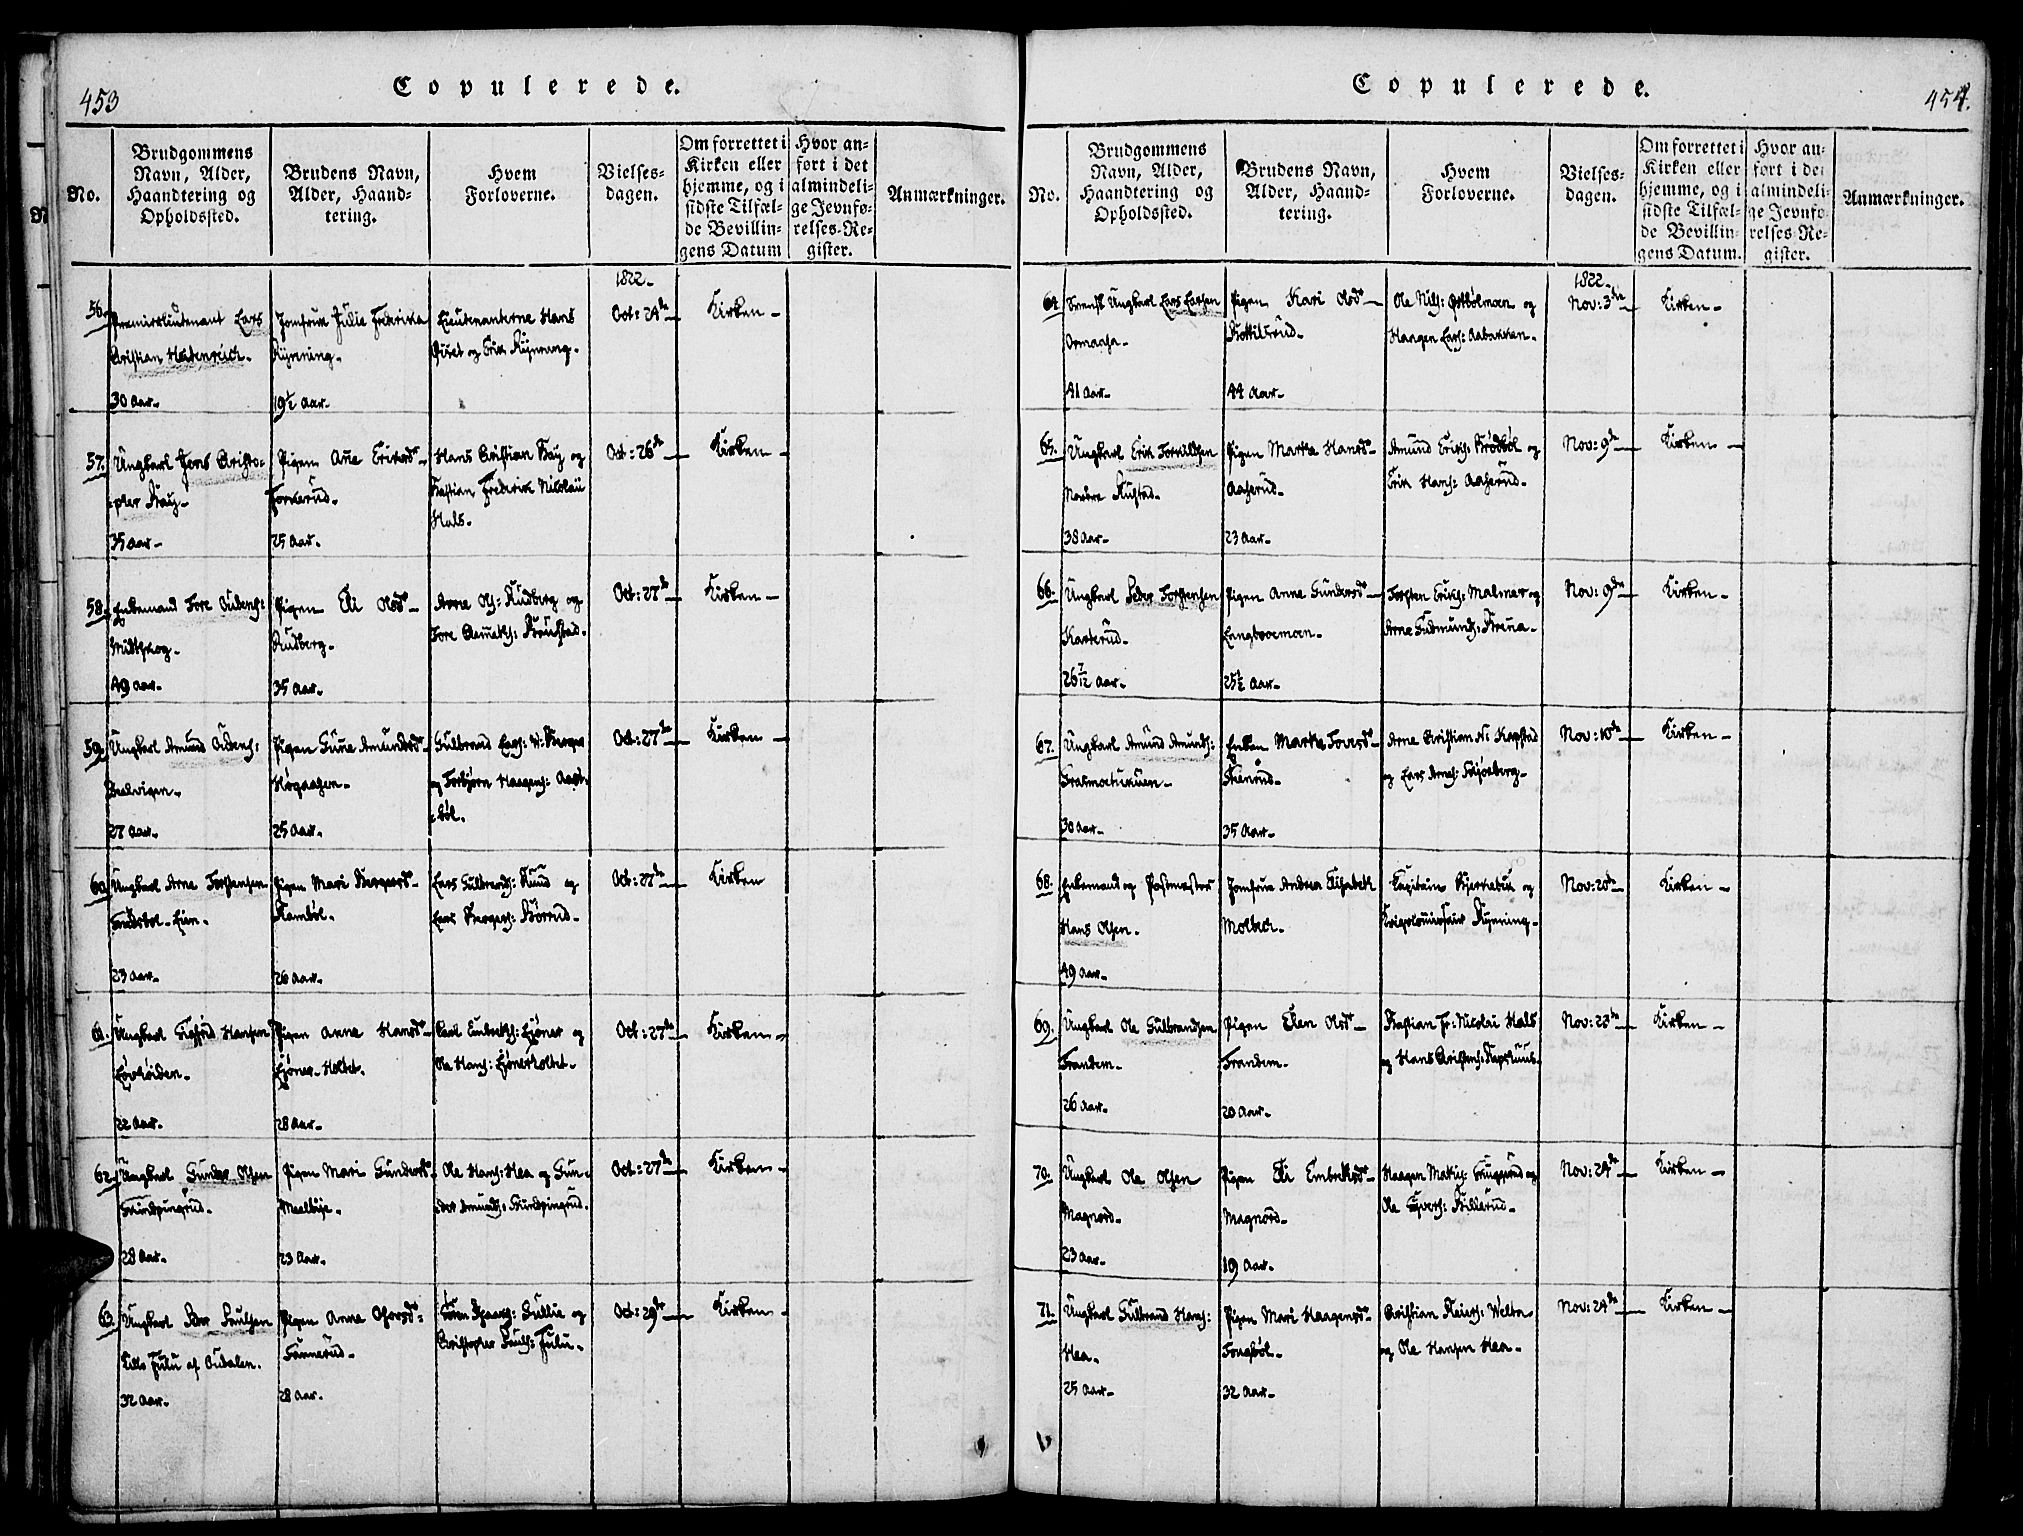 453
Copulerede.
No.
Brudgommens
Navn, Alder,
Haandtering og
Opholdssted.
Brudens Navn,
Alder, Haand-
tering.
Hvem
Forloverne.
Vielses-
dagen.
Om forrettet i
Kirken eller
hjemme, og i
sidste Tilfæl-
de Bevillin-
gens Datum
Hvor an-
ført i det
almindeli-
ge Jevnfø-
relses-Re-
gister.
Anmærkninger.
1822.
56.
Premierlieutenant Lars
Christian Heidenreich.
30 Aar.
Jomfrue Julie Frederikka
Rynning.
19½ Aar.
Lieutenanterne Hans
og Erik Rynning.
Oct: 24de
Kirken
57.
Ungkarl Jens Christo-
pher Kay
35 Aar
Pigen Ane Eriksd.
Torkerud.
25 Aar.
Hans Christian Kay og
Bastian Frederik Nicolai
Hals.
Oct: 26de
Kirken
58.
Enkemand Tore Audens:
Midtskog.
49 Aar.
Pigen Eli Olsd.
Rudberg.
35 Aar.
Arne Ols: Rudberg og
Tore
Oct: 27de
Kirken
59.
Ungkarl Amund Audens:
27 Aar.
Pigen Gune Amundsd.
Høgaasen.
25 Aar.
Gulbrand Lars: N: Berger
og Torbjørn Haagens: Aast-
bøl.
Oct: 27de
Kirken
60.
Ungkarl Arne Torstensen
23 Aar.
Pigen Mari Bergersd.
Rambøl.
26 Aar.
Lars Gulbrands: Ruud og
Lars Bergers:
Oct: 27de
Kirken
61.
Ungkarl Sigfrid Hansen
22 Aar.
Pigen Anne Hansd.
Ljøner-Holtet.
28 Aar.
Carl Embrets: Ljøner og
Ole Hans: Ljønerholtet.
Oct: 27de
Kirken
62.
Ungkarl Gunder Olsen
28 Aar.
Pigen Mari Gundersd.
23 Aar.
Ole Hans: Hea og Gun-
der Amunds:
Oct: 27de
Kirken
63.
Ungkarl Boe Poulsen
Lille Fulu af Oudalen.
32 Aar.
Pigen Anne
28 Aar.
Gullie og
Christopher Pouls: Fulu.
Oct: 29de
Kirken
454.
Copulerede.
No.
Brudgommens
Navn, Alder,
Haandtering og
Opholdssted.
Brudens Navn,
Alder, Haand-
tering.
Hvem
Forloverne.
Vielses-
dagen.
Om forrettet i
Kirken eller
hjemme, og i
sidste Tilfæl-
de Bevillin-
gens Datum.
Hvor an-
ført i det
almindeli-
ge Jevnfø-
relses-Re-
gister.
Anmærkninger.
1822.
64.
Svensk Ungkarl Lars Larsen
41 Aar.
Pigen Kari Olsd.
44 Aar.
Ole Nils: og
Haagen Lars: Aabakken.
Nov: 3de
Kirken
65.
Ungkarl Erik Torkildsen
Nordre Rustad.
38 Aar.
Pigen Marte Hansd.
Aaserud.
23 Aar.
Amund Eriks: og
Erik Hans: Aaserud.
Nov: 9de
Kirken
66.
Ungkarl Peder Torstensen
Kaeterud.
26 7/12 Aar.
Pigen Anne Gundersd.
Langbroemoen.
25½ Aar.
Torsten Eriks: Malmer og
Arne Gudmunds:
Nov: 9de
Kirken
67.
Ungkarl Amund Amunds:
30 Aar.
Enken Marthe Toversd.
35 Aar.
Arne Christian N: Kopstad
og Lars Arnes: Skjøeberg.
Nov: 10de
Kirken
68.
Enkemand og Postmester
Hans Olsen.
49 Aar.
Jomfrue Andrea Elisabeth
Molbech.
Capitain og
Krigscommissair Rynning.
Nov: 20de
Kirken
69.
Ungkarl Ole Gulbrandsen
Trandem.
26 Aar.
Pigen Elen Olsd.
Trandem.
20 Aar.
Bastian Fr: Nicolai Hals
og Hans
Nov: 23de
Kirken
70.
Ungkarl Ole Olsen
Magnord.
23 Aar.
Pigen Eli Embretsd.
Magnord.
19 Aar.
Haagen og
Ole
Nov: 24de
Kirken
71.
Ungkarl Gulbrand Hans:
Hea.
25 Aar.
Pigen Mari Haagensd.
Tongbøl.
32 Aar.
Christian Welta
og Ole Hansen Hea.
Nov: 24de
Kirken